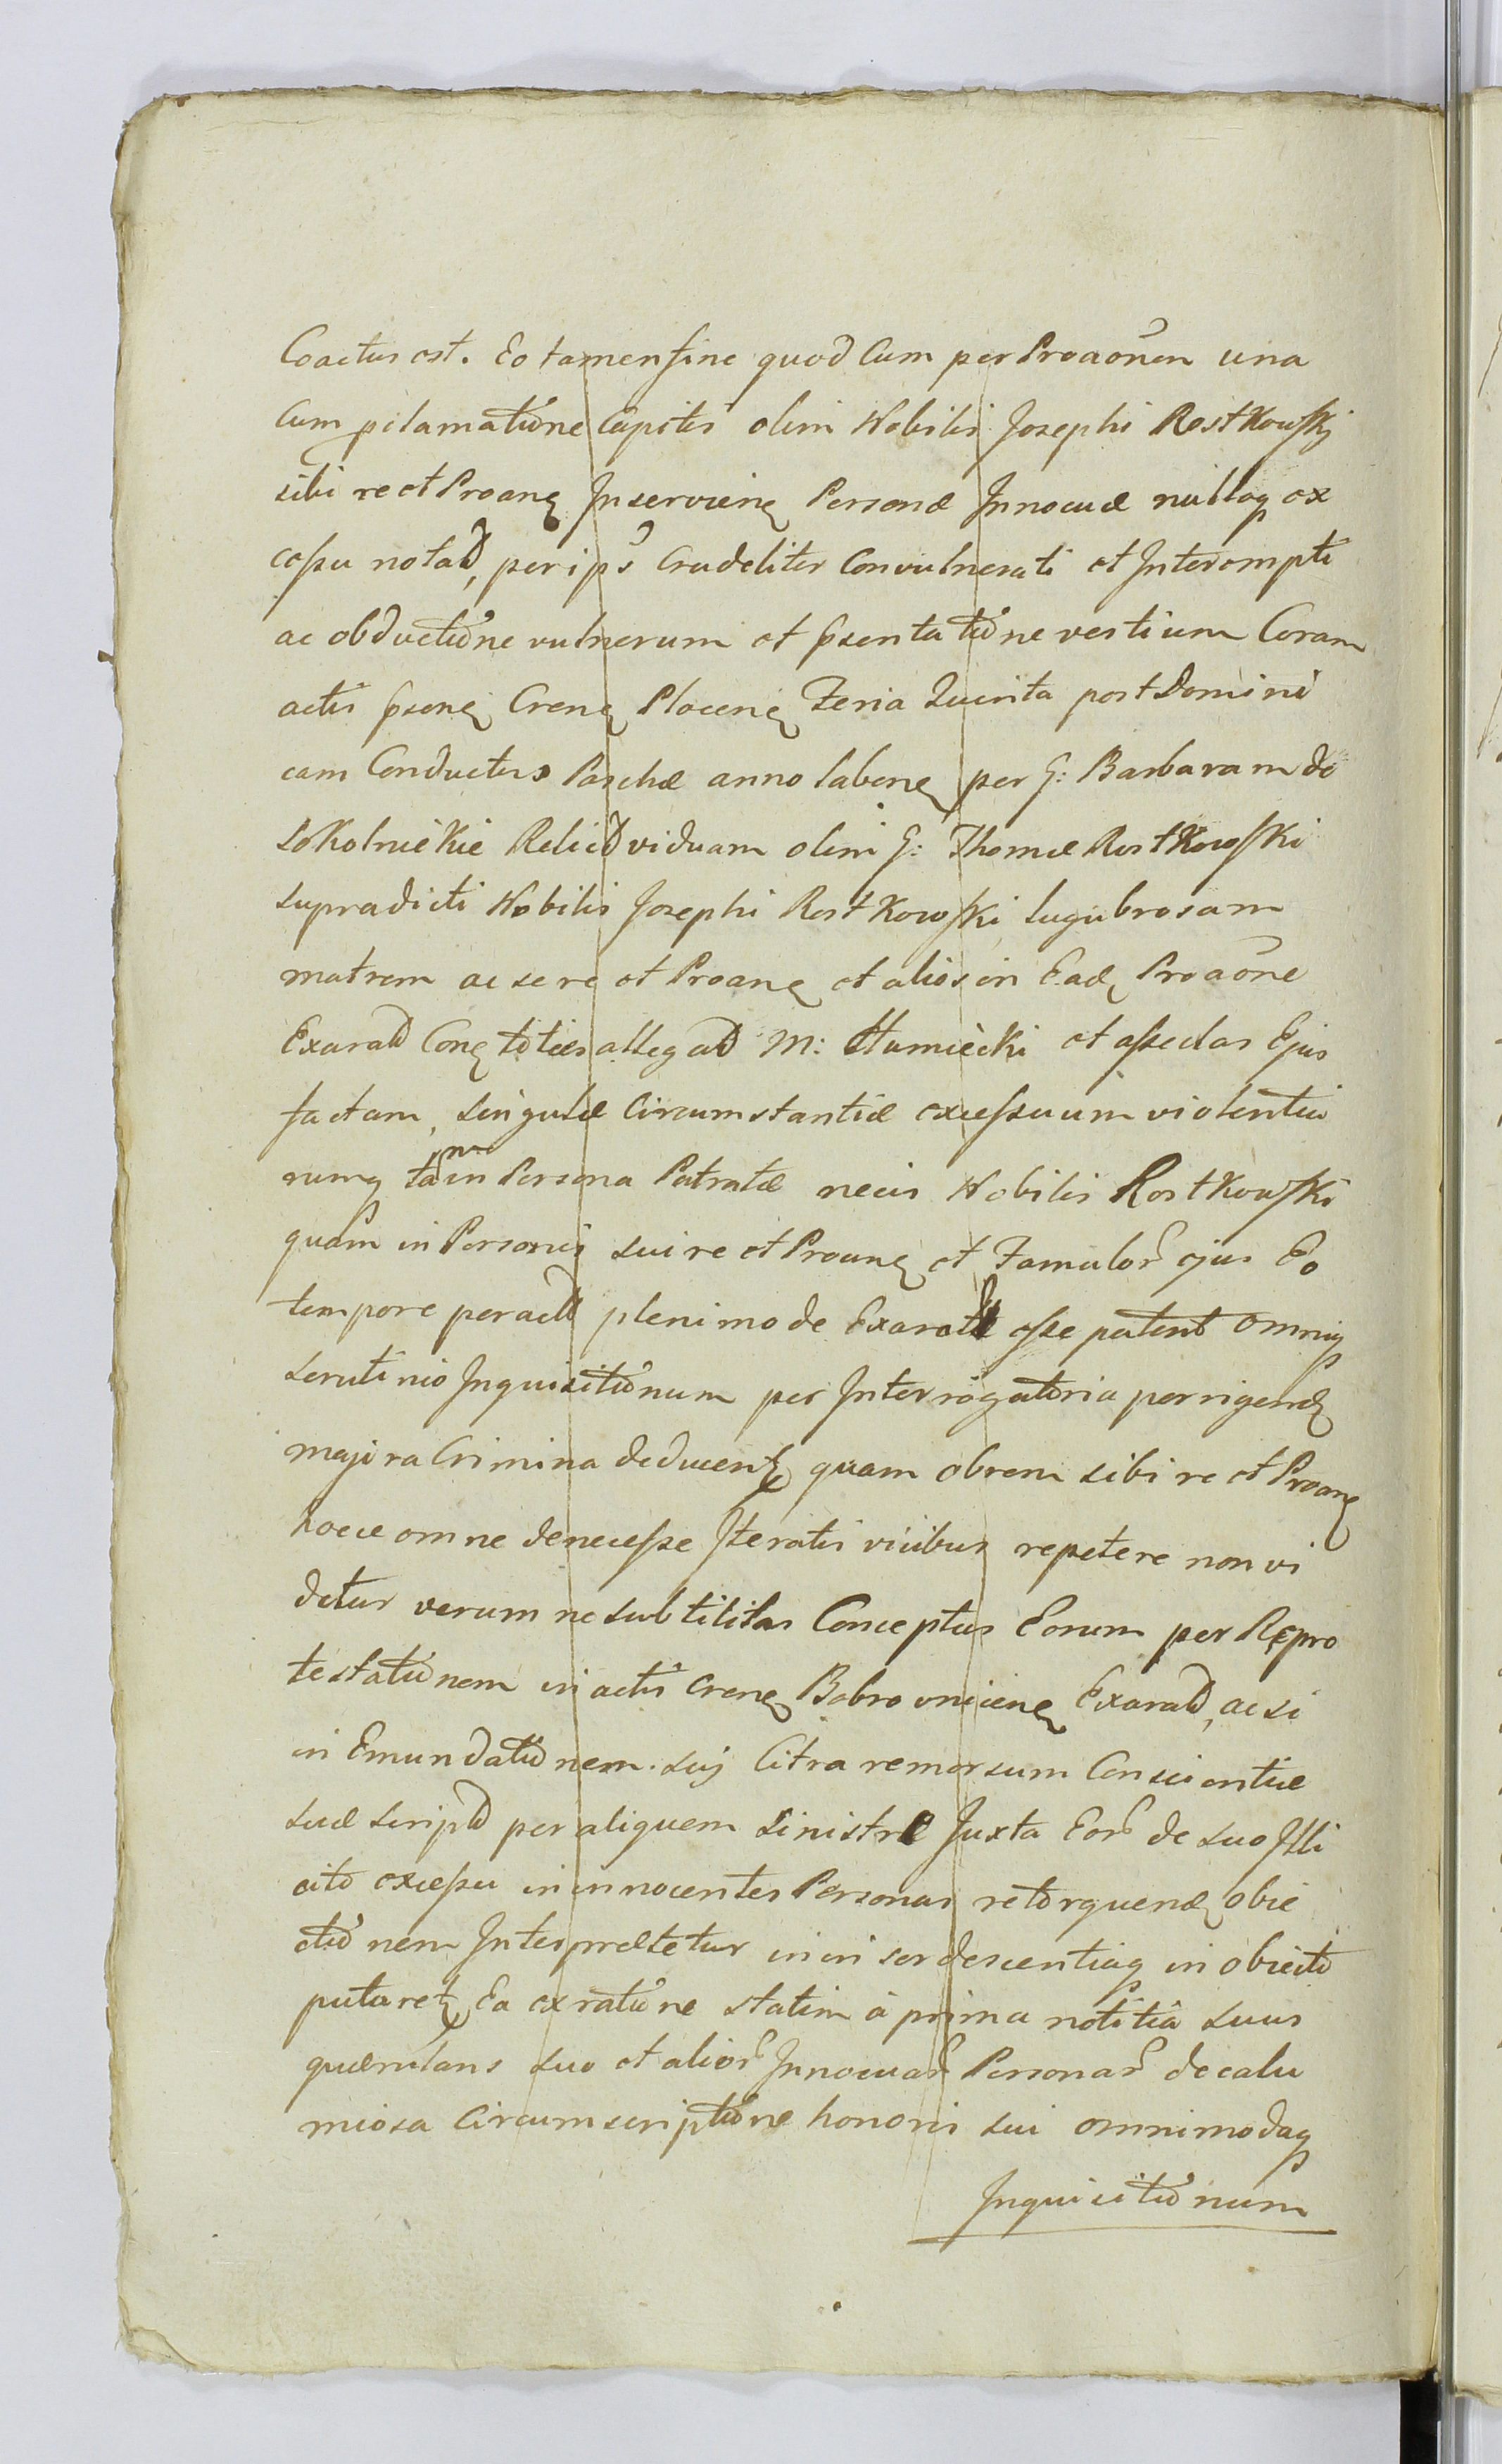 Coactus est. Eo tamen fine quod Cum per Proaõnem una
Cum pclamatiõne Capitis olim Nobilis Josephi Rostkowskj
sibi re et Proanę Inservienę Personæ Innocuæ nullaq ex
cessu notað, per ips Crudeliter Convulnerati et Interempti
ac obductiõne vulnerum et pṡentatiõne vestium Coram
actis pṡenę Crenę Plocenę Feria Quinta post Domini
cam Conductus Paschæ anno labenę per G: Barbaram de
Sokolnickie Relictð viduam olim G: Thomæ Rostkowski
supradicti Nobilis Josephi Rostkowski lugubrosam
matrem ac se re et Proanę et alios in Eadę Proaõne
Exarað Conę toties allegað M: Humiecki et assedas Ejus
factam, singulæ Circumstantiæ excessuum violentia
rumq tam in Persona Patratæ necis Nobilis Rostkowski
quam in Personis sui re et Proanę et Famulor ejus Eo
tempore peractð plenimode Exaratæ esse patent omniq
scrutinio Inquisitiõnum per Interrogatoria porrigendę
majora Crimina deducentę quam obrem sibi re et Proanę
hocce omne denecesse Iteratis vicibus repetere non vi
detur verum ne subtilitas Conceptus Eorum per Repro
testatiõnem in actis Crenę Bobrovnicenę Exarað, ac si
in Emundatiõnem suj Citra remorsum Conscientiæ
suæ scriptð per aliquem sinistre Juxta Eor de suo Illi
cito excessu in innocentes Personas retorquendę obie
ctiõnem Interprætetur inin sordescentiaq in obiecto
putaretę Ea ex ratiõne statim à prima notitiâ suus
quærulans suo et alior Innocuar Personar de calu
miosa Circumscriptiõne honoris sui omnimodaq
Inquisitiõnum